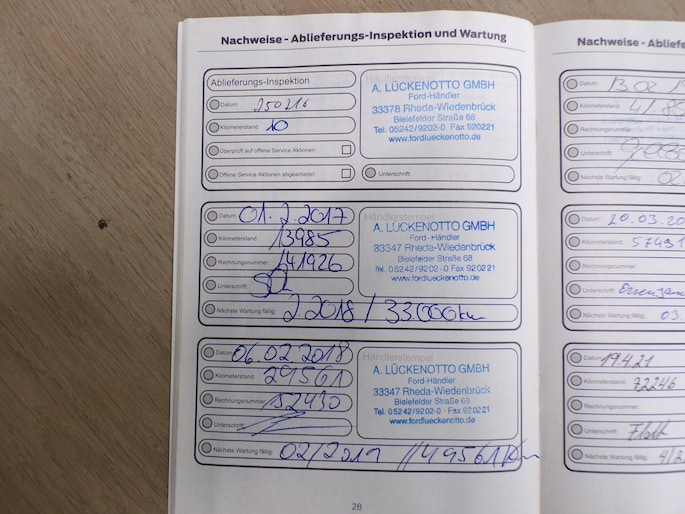 Nachweise - Ablieferungs-Inspektion und Wartung
Ablieferungs-Inspektion
Datum: 250216
Kilometerstand: 10
Überprüft auf offene Service Aktionen:
Offene Service Aktionen abgearbeitet:
Händlerstempel
A. LÜCKENOTTO GMBH
Ford-Händler
33378 Rheda-Wiedenbrück
Bielefelder Straße 68
Tel. 05242/9202-0 Fax 920221
www.fordlueckenotto.de
Unterschrift:
Datum: 01.2.2017
Kilometerstand: 13985
Rechnungsnummer: 141926
Unterschrift:
Nächste Wartung fällig: 2.2018 / 33000km
Händlerstempel
A. LÜCKENOTTO GMBH
Ford-Händler
33347 Rheda-Wiedenbrück
Bielefelder Straße 68
Tel. 05242/9202-0 Fax 920221
www.fordlueckenotto.de
Datum: 06.02.2018
Kilometerstand: 29561
Rechnungsnummer: 152430
Unterschrift:
Nächste Wartung fällig: 02/2019 // 49561 Km
Händlerstempel
A. LÜCKENOTTO GMBH
Ford-Händler
33347 Rheda-Wiedenbrück
Bielefelder Straße 68
Tel. 05242/9202-0 · Fax 920221
www.fordlueckenotto.de
28
Nachweise - Abliefe
Datum: 13.02.19
Kilometerstand: 41.85
Rechnungsnummer:
Unterschrift:
Nächste Wartung fällig: 02
Datum: 20.03.20
Kilometerstand: 57431
Rechnungsnummer:
Unterschrift:
Nächste Wartung fällig: 03.
Datum: 19.4.21
Kilometerstand: 72246
Rechnungsnummer:
Unterschrift:
Nächste Wartung fällig: 4/2